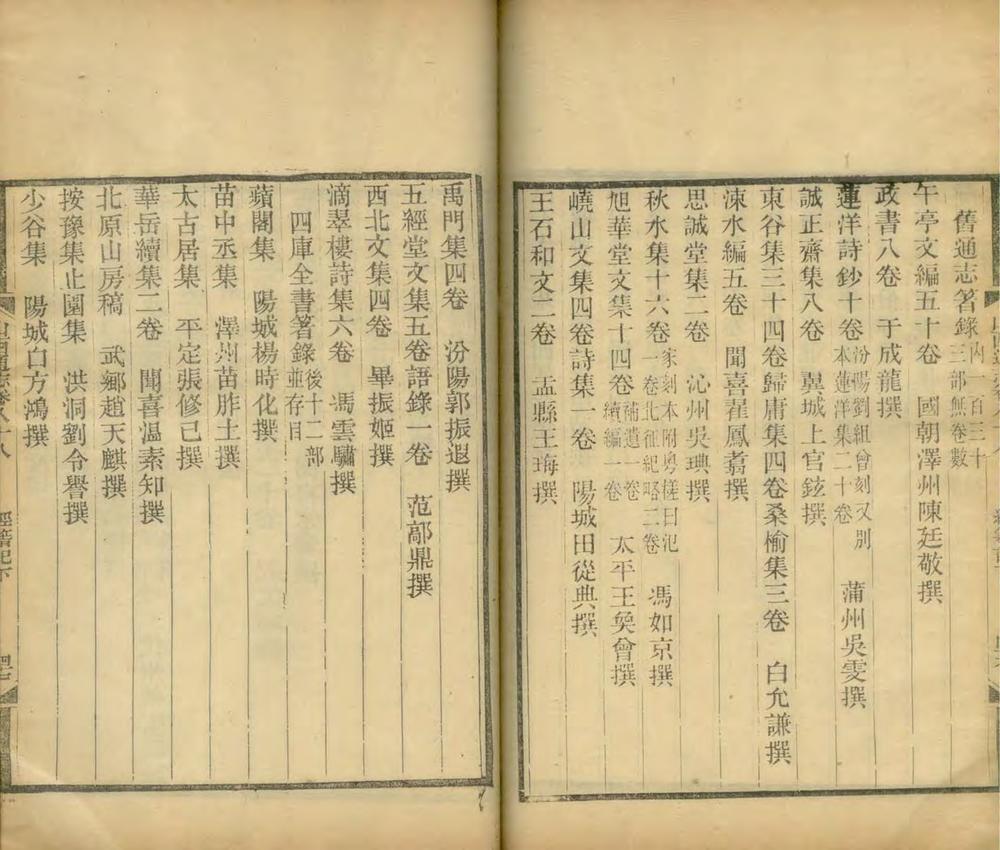 舊通志著錄內一百三十三部無卷數
午亭文編五十卷　國朝澤州陳廷敬撰
政書八卷　于成龍撰
蓮洋詩鈔十卷汾陽劉組曾刻又別本蓮洋集二十卷　蒲州吳雯撰
誠正齋集八卷　翼城上官鉉撰
東谷集三十四卷歸庸集四卷桑榆集三卷　白允謙撰
涑水編五卷　聞喜翟鳳翥撰
思誠堂集二卷　沁州吳琠撰
秋水集十六卷家刻本附粵槎日紀一卷北征紀略二卷　馮如京撰
旭華堂文集十四卷補遺一卷續編一卷　太平王奐曾撰
嶢山文集四卷詩集一卷　陽城田從典撰
王石和文二卷　盂縣王珻撰
禹門集四卷　汾陽郭振遐撰
五經堂文集五卷語錄一卷　范鄗鼎撰
西北文集四卷　畢振姬撰
滴翠樓詩集六卷　馮雲驌撰
四庫全書著錄後十二部並存目
蘋閣集　陽城楊時化撰
苗中丞集　澤州苗胙土撰
太古居集　平定張修己撰
華岳續集二卷　聞喜溫素知撰
北原山房稿　武鄉趙天麒撰
按豫集止園集　洪洞劉令譽撰
少谷集　陽城白方鴻撰
經籍記下